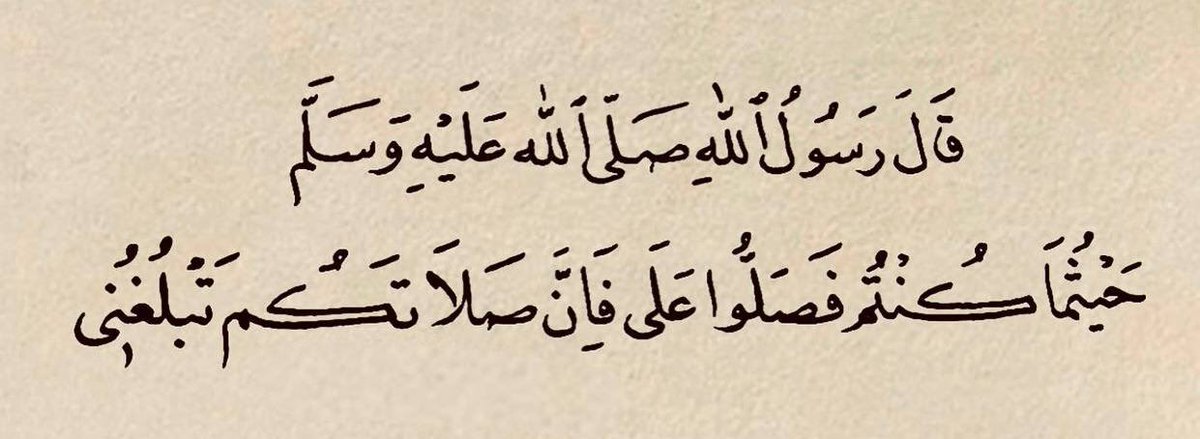 قَالَ رَسُولُ ٱللهِ صَلّى ٱلله عَلَيْهِ وَسَلَّم
حَيْثُمَا كُنْتُم فَصَلُّوا عَلَى فَإِنَّ صَلَاتَكُم تَبْلُغُنِى